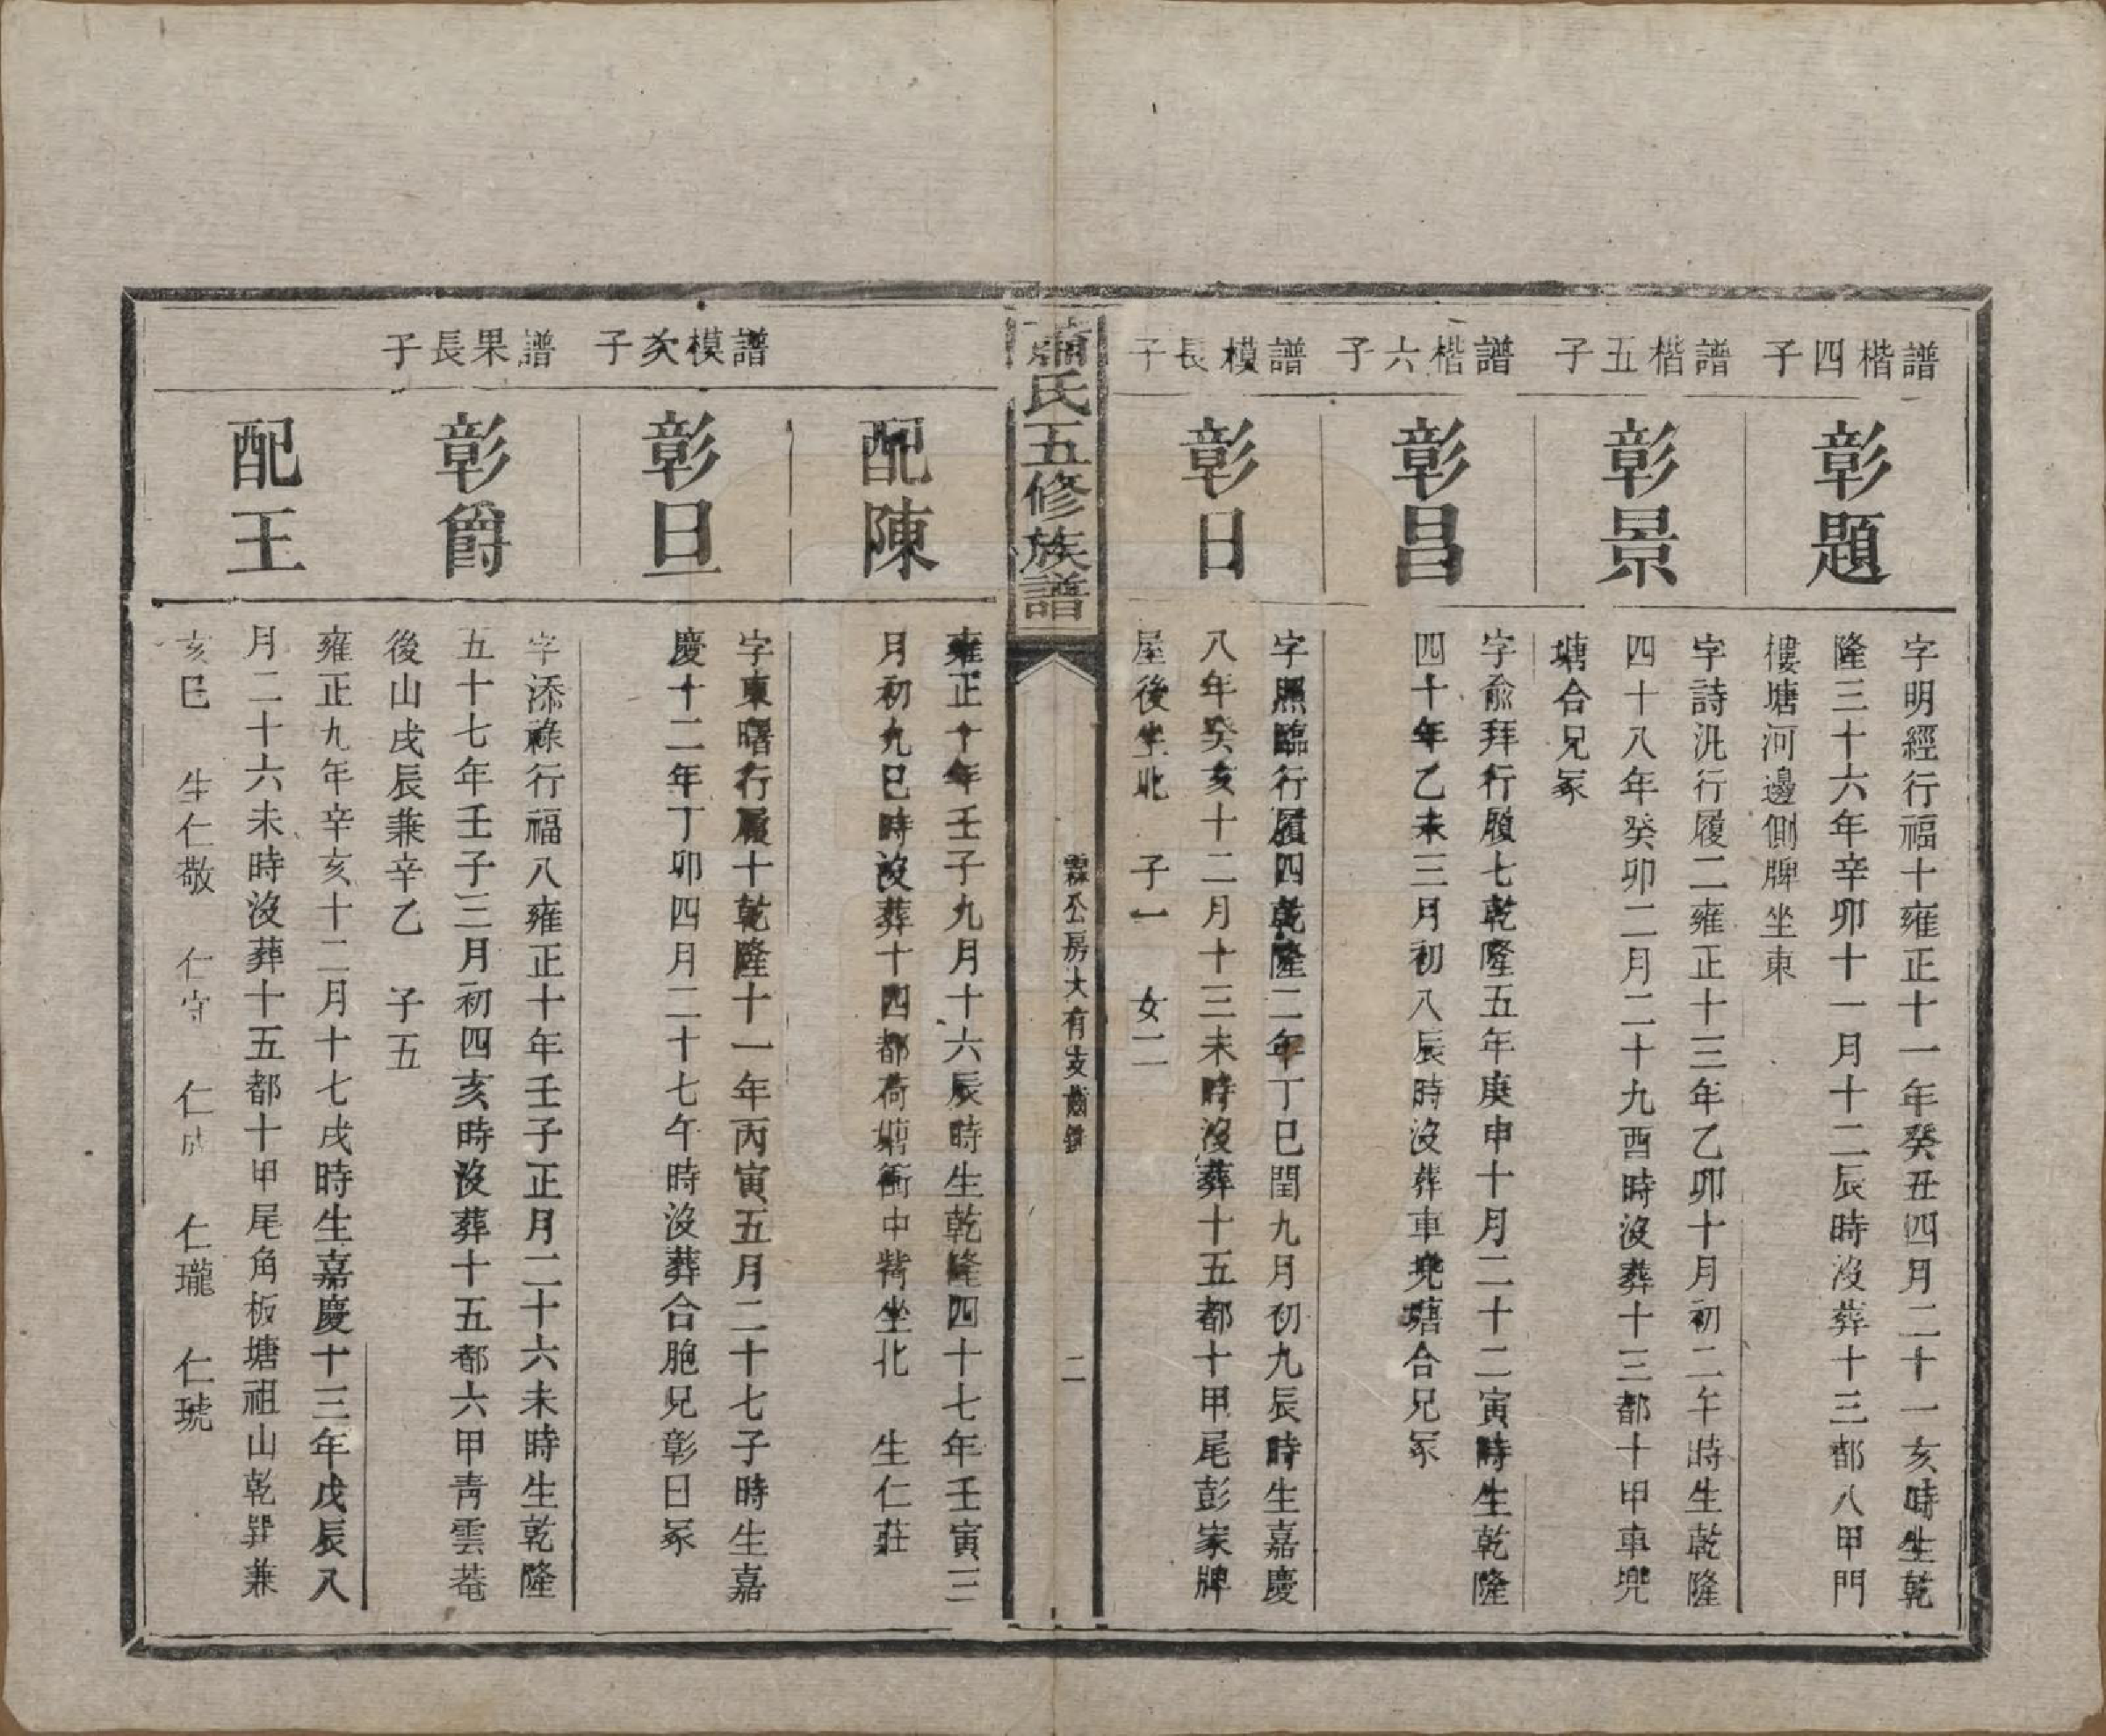 譜楷四子
彰題
字明經行福十雍正十一年癸丑四月二十一亥時生乾
隆三十六年辛卯十一月十二辰時沒葬十三都八甲門
樓塘河邊側牌坐東
譜楷五子
彰景
字詩汎行履二雍正十三年乙卯十月初二午時生乾隆
四十八年癸卯二月二十九酉時沒葬十三都十甲車兜
塘合兄冢
譜楷六子
彰昌
字俞拜行履七乾隆五年庚申十月二十二寅時生乾隆
四十年乙未三月初八辰時沒葬車兜塘合兄冢
譜模長子
彰日
字照臨行履四乾隆二年丁巳閏九月初九辰時生嘉慶
八年癸亥十二月十三未時沒葬十五都十甲尾彭家牌
屋後坐北 子一 女二
蕭氏五修族譜
霖公房大有支齒錄
二
配陳
雍正十年壬子九月十六辰時生乾隆四十七年壬寅三
月初九巳時沒葬十四都荷塘衝中嘴坐北 生仁莊
譜模次子
彰旦
字東曙行履十乾隆十一年丙寅五月二十七子時生嘉
慶十二年丁卯四月二十七午時沒葬合胞兄彰日冢
譜果長子
彰爵
字添祿行福八雍正十年壬子正月二十六未時生乾隆
五十七年壬子三月初四亥時沒葬十五都六甲靑雲菴
後山戌辰兼辛乙 子五
配王
雍正九年辛亥十二月十七戌時生嘉慶十三年戊辰八
月二十六未時沒葬十五都十甲尾角板塘祖山乾巽兼
亥巳 生仁敬 仁守 仁成 仁瓏 仁琥